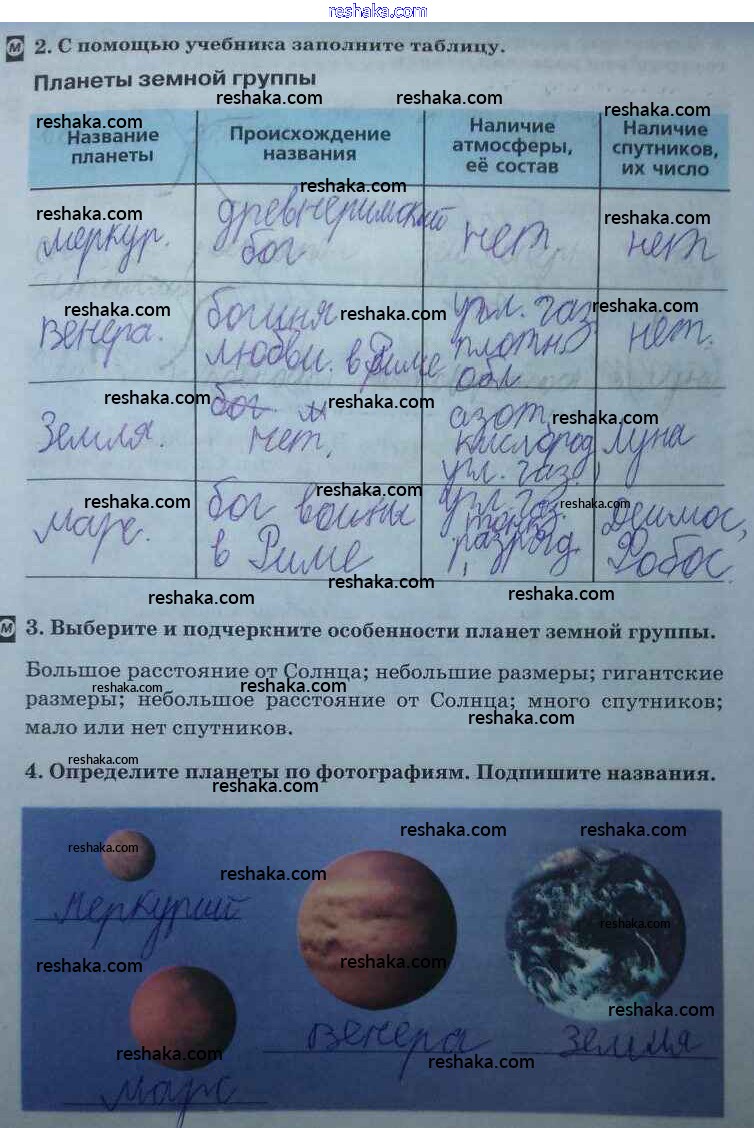 reshaka.com
2. С помощью учебника заполните таблицу.
Планеты земной группы
reshaka.com reshaka.com
reshaka.com reshaka.com
Название планеты
Происхождение названия
Наличие атмосферы, её состав
Наличие спутников, их число
reshaka.com
reshaka.com reshaka.com
меркур.
древнеримский бог
нет
нет
reshaka.com reshaka.com reshaka.com
венера.
богиня любви. в Риме
угл. газ плотн обл
нет.
reshaka.com reshaka.com
reshaka.com
Земля.
бог м нет.
азот, кислород угл. газ.
Луна
reshaka.com reshaka.com reshaka.com
марс.
бог войны в Риме
угл. газ. тонк. разряд
Деимос, Фобос.
reshaka.com
reshaka.com reshaka.com
М
3. Выберите и подчеркните особенности планет земной группы.
Большое расстояние от Солнца; небольшие размеры; гигантские
reshaka.com reshaka.com
размеры; небольшое расстояние от Солнца; много спутников;
reshaka.com
мало или нет спутников.
reshaka.com
4. Определите планеты по фотографиям. Подпишите названия.
reshaka.com
reshaka.com reshaka.com
reshaka.com
reshaka.com
Меркурий
reshaka.com
reshaka.com reshaka.com
reshaka.com
венера
земля
reshaka.com reshaka.com
марс